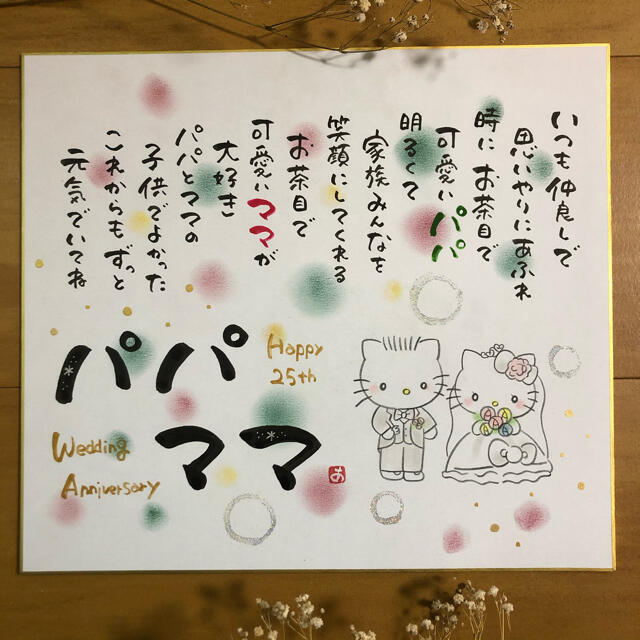 いつも仲良しで
思いやりにあふれ
時にお茶目で
可愛いパパ
明るくて
家族みんなを
笑顔にしてくれる
お茶目で
可愛いママが
大好き
パパとママの
子供でよかった
これからもずっと
元気でいてね
パパ
ママ
Happy
25th
Wedding
Anniversary
あ